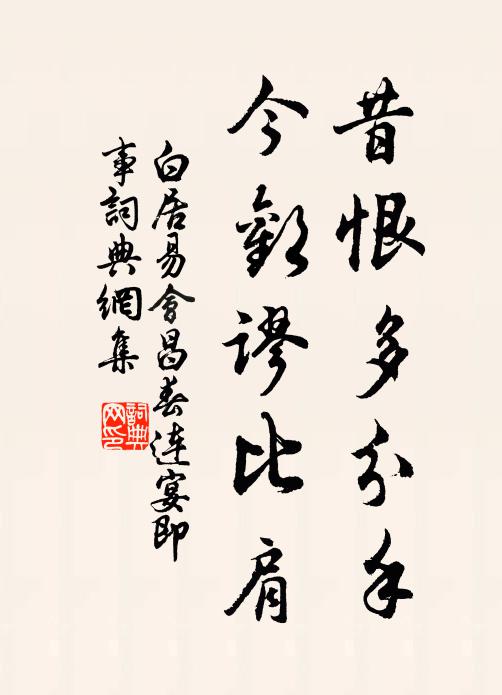 昔恨多分手
今歡謬比肩
白居易會昌春連宴即
事詞典網集
詞典
网印